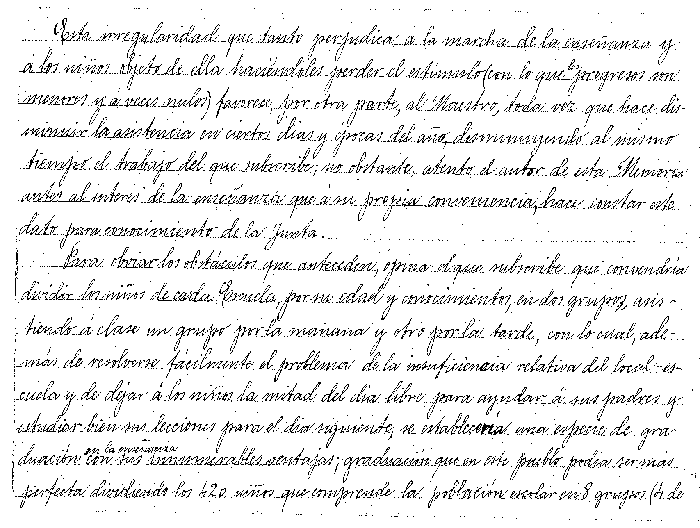 Esta irregularidad que tanto perjudica a la marcha de la enseñanza y
á los niños objeto de ella haciéndoles perder el estímulo (con lo que los progresos son
menores y á veces nulos) favorece, por otra parte, al Maestro, toda vez que hace dis-
minuir la asistencia en ciertos días y épocas del año, disminuyendo al mismo
tiempo el trabajo del que subscribe; no obstante, atento el autor de esta Memoria
antes al interés de la enseñanza que á su propia conveniencia, hace constar este
dato para conocimiento de la Junta.
Para obviar los obstáculos que anteceden, opina el que subscribe que convendría
dividir los niños de cada Escuela, por su edad y conocimientos, en dos grupos, asis-
tiendo á clase un grupo por la mañana y otro por la tarde, con lo cual, ade-
más de resolverse fácilmente el problema de la insuficiencia relativa del local-es-
cuela y de dejar á los niños la mitad del día libre para ayudar á sus padres y
estudiar bien sus lecciones para el día siguiente, se establecería una especie de gra-
duación en la enseñanza con sus innumerables ventajas; graduación que en este pueblo podía ser más
perfecta dividiendo los 420 niños que comprende la población escolar en 8 grupos (4 de